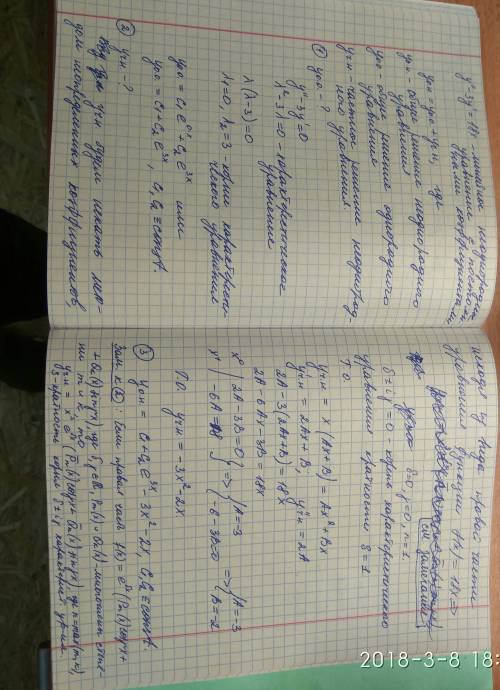 y''-3y' = 18x - линейное неоднородное
уравнение с постоян-
ными коэффициентами
yон = yоо + yчн, где
yон - общее решение неоднородного
уравнения
yоо - общее решение однородного
уравнения
yчн - частное решение неоднород-
ного уравнения
① yоо - ?
y''-3y'=0
λ²-3λ=0 - характеристическое
уравнение
λ(λ-3)=0
λ₁=0, λ₂=3 - корни характеристи-
ческого уравнения
yоо = C₁e^{0·x} + C₂e^{3x} или
yоо = C₁ + C₂e^{3x}, C₁, C₂ ≡ const.
② yчн - ?
yчн будем искать мето-
дом неопределенных коэффициентов,
исходя из вида правой части
уравнения функции f(x) = 18x ⇒
(см замечание)
δ=0, γ=0, n=1.
δ±iγ = 0 - корень характеристического
уравнения кратности s=1
Т.о.
yчн = x(Ax+B) = Ax²+Bx
y'чн = 2Ax+B, y''чн = 2A
2A-3(2Ax+B)=18x
2A-6Ax-3B=18x
x⁰ | 2A-3B=0 } ⇒ { A=-3 ⇒ { A=-3
x¹ | -6A=18 } { -6-3B=0 { B=-2
Т.о. yчн = -3x²-2x
③ yон = C₁+C₂e^{3x}-3x²-2x, C₁,C₂ ≡ const
Зам. к ②: Если правая часть f(x) = e^{δx}(Pn(x)cosγx+
+Qm(x)sinγx), где δ,γ∈R, Pn(x), Qm(x) - многочлены степе-
ни n и m, то
s - кратность корня δ±iγ характерист. ур-ия.
2018-3-8 18: